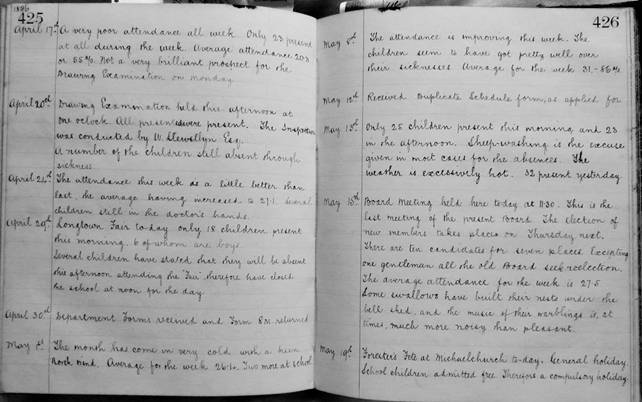 1896
425
April 17th A very poor attendance all week. Only 23 present
at all during the week. Average attendance 20.3
or 55%. Not a very brilliant prospect for the
Drawing Examination on Monday.
April 20th Drawing Examination held this afternoon at
one oclock. All present were present. The Inspection
was conducted by W. Llewellyn Esq.
A number of the children still absent through
sickness.
April 24th The attendance this week is a little better than
last, the average having increased to 27.1. Several
children still in the doctor's hands.
April 29th Longtown Fair to-day only 18 children present
this morning. 6 of whom are boys.
Several children have stated that they will be absent
this afternoon attending the Fair, therefore have closed
the school at noon for the day.
April 30th Department Forms received and Form 8 returned
May 1st The month has come in very cold with a keen
North wind. Average for the week 26.4. Two more at school
426
May 8th The attendance is improving this week. The
children seem to have got pretty well over
their sicknesses. Average for the week 31.-86%.
May 12th Received Duplicate Schedule form, as applied for
May 13th Only 25 children present this morning and 23
in the afternoon. Sheep-washing is the excuse
given in most cases for the absences. The
weather is excessively hot. 32 present yesterday.
May 15th Board Meeting held here today at 11.30. This is the
last meeting of the present Board. The election of
new members takes places on Thursday next.
There are ten candidates for seven places. Excepting
one gentleman all the old Board seek reelection.
The average attendance for the week is 27.5
Some swallows have built their nests under the
bell shed, and the music of their warblings is, at
times, much more noisy than pleasant.
May 19th Forester's Fete at Michaelchurch to-day. General holiday.
School children admitted free. Therefore a compulsory holiday.